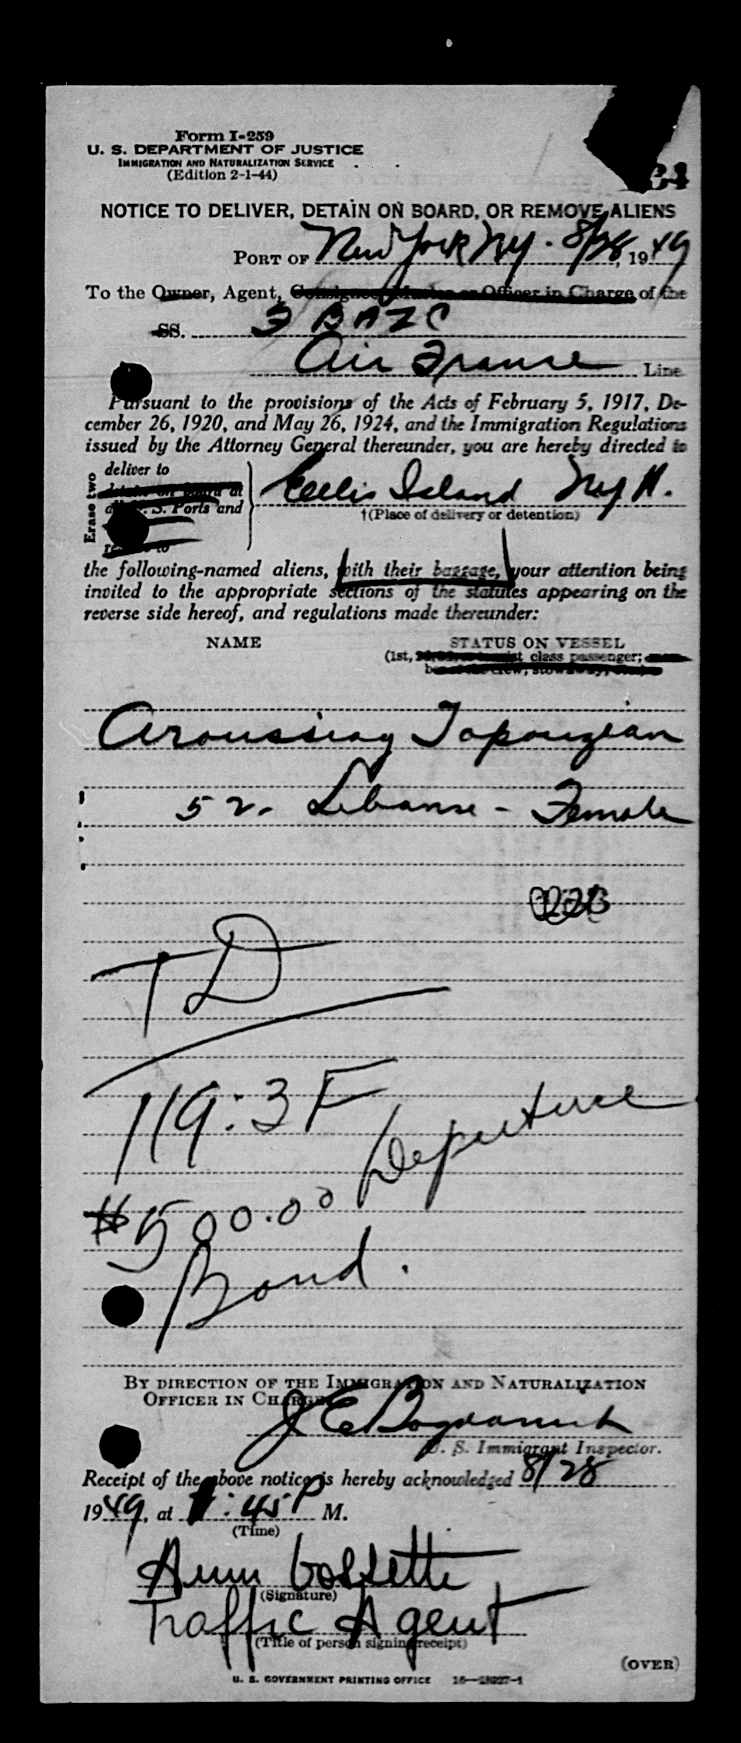 64
Form I-259
U. S. DEPARTMENT OF JUSTICE
IMMIGRATION AND NATURALIZATION SERVICE
(Edition 2-1-44)
NOTICE TO DELIVER, DETAIN ON BOARD, OR REMOVE ALIENS
PORT OF New York NY. 8/28, 1949
To the Owner, Agent, Consignee, Master or Officer in Charge of the
SS. F BAZC
Air France Line
Pursuant to the provisions of the Acts of February 5, 1917, De-
cember 26, 1920, and May 26, 1924, and the Immigration Regulations
issued by the Attorney General thereunder, you are hereby directed to
Erase two
deliver to
detain on board at
all U. S. Ports and
remove to
Ellis Island NY H.
†(Place of delivery or detention)
the following-named aliens, with their baggage, your attention being
invited to the appropriate sections of the statutes appearing on the
reverse side hereof, and regulations made thereunder:
NAME STATUS ON VESSEL
(1st, class passenger;
Aroussiag Topouzian
52. Lebanse - Female
TD
119:3F
Departure
$500.00
Bond.
BY DIRECTION OF THE IMMIGRATION AND NATURALIZATION
OFFICER IN CHARGE
J E
U. S. Immigrant Inspector.
Receipt of the above notice is hereby acknowledged 8/28
1949, at 1:45 P M.
(Time)
Ann Gossette
(Signature)
Traffic Agent
(Title of person signing receipt)
(OVER)
U. S. GOVERNMENT PRINTING OFFICE